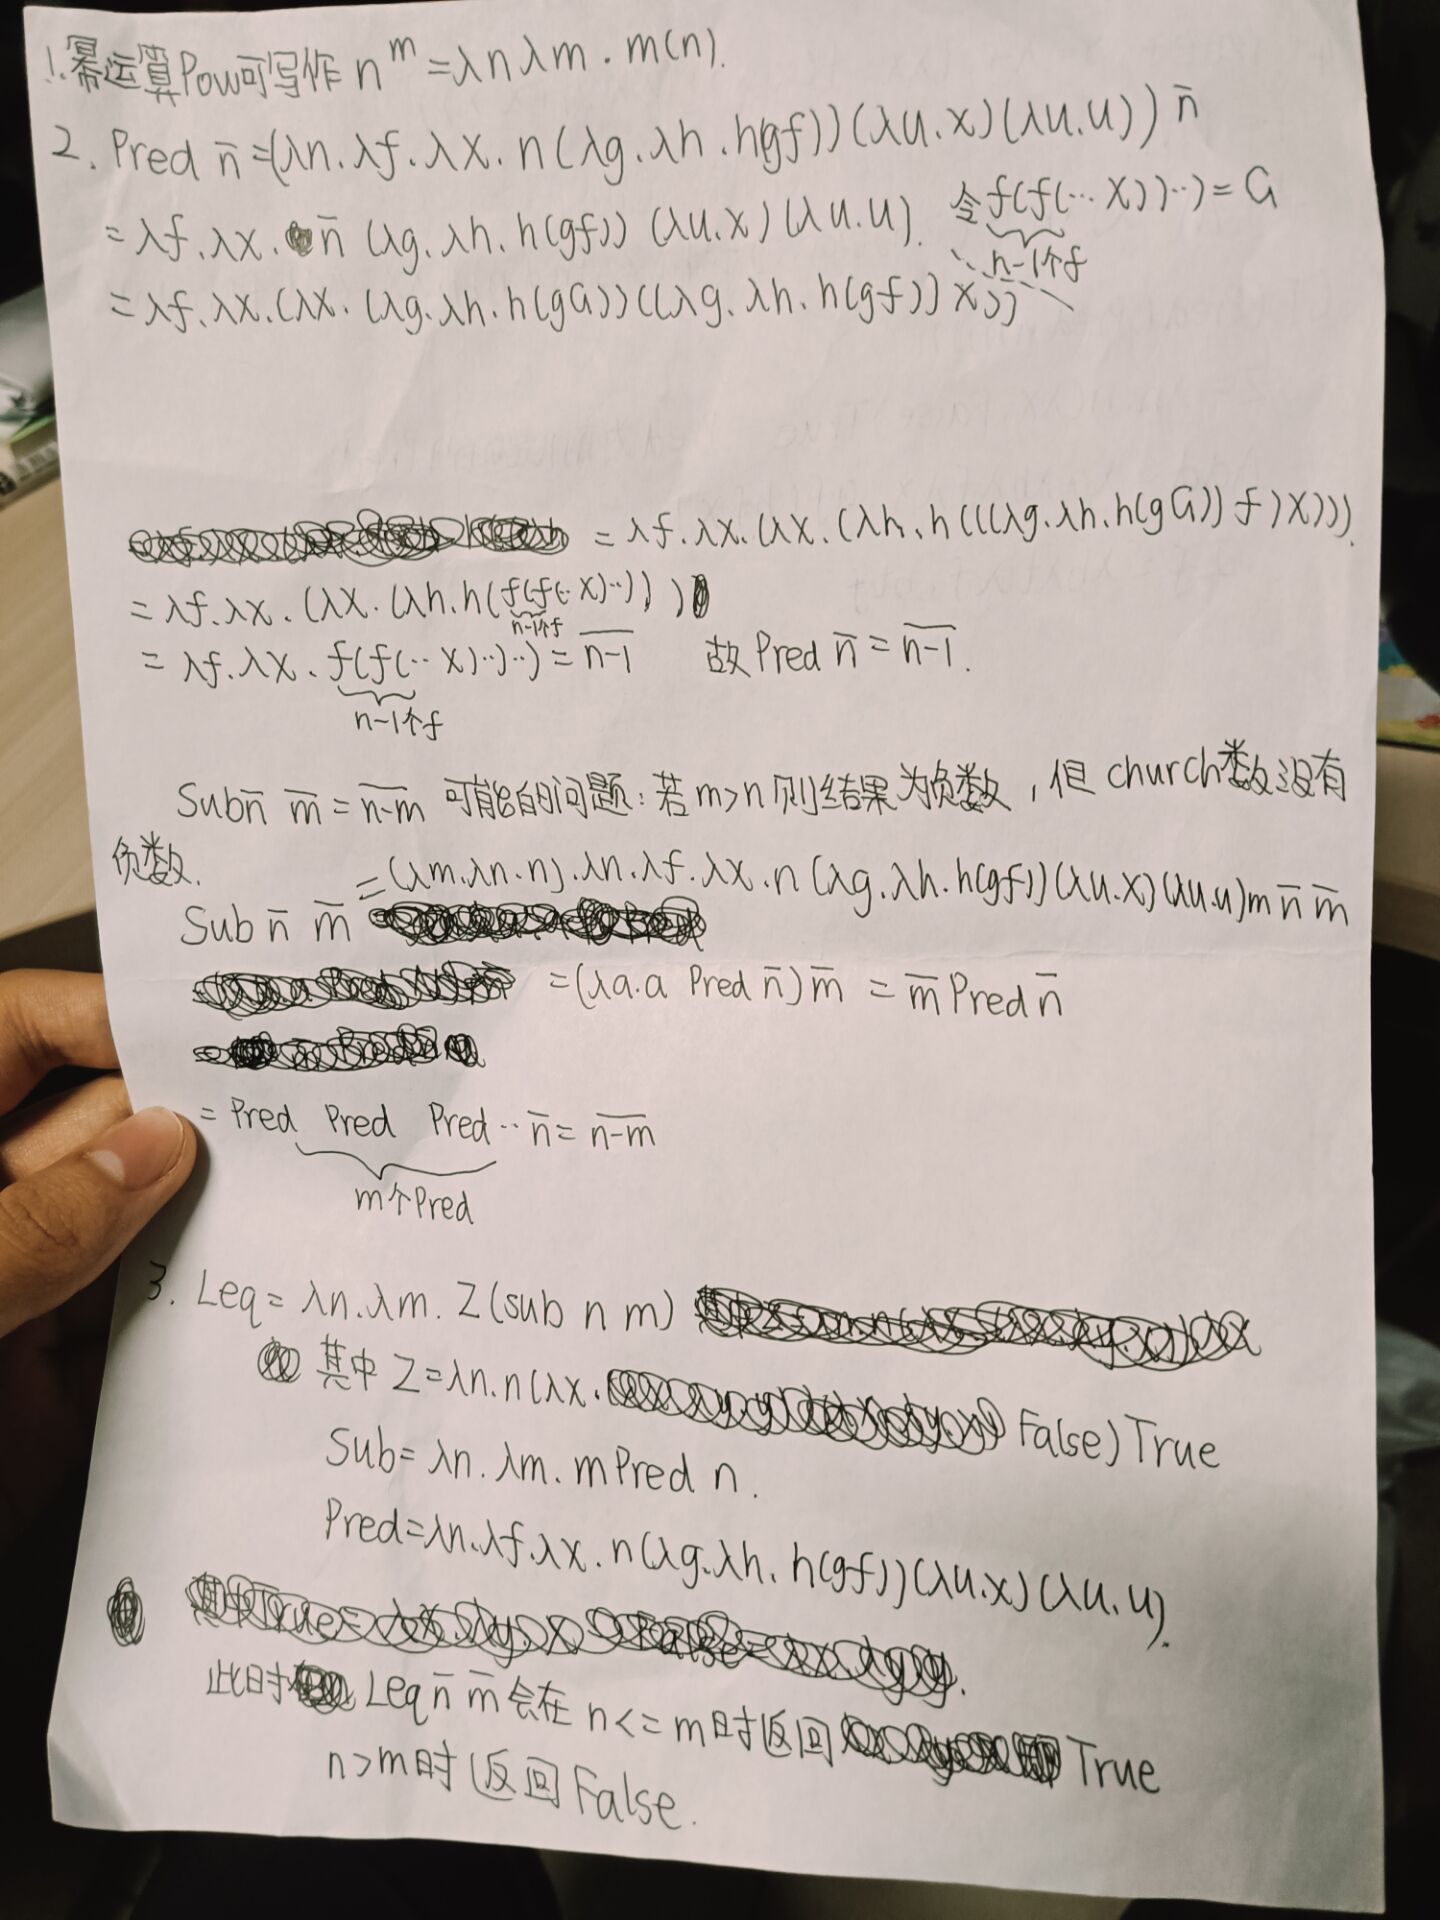 1.幂运算Pow可写作 n^m=λnλm.m(n).
2. Pred n̅=(λn.λf.λx.n(λg.λh.h(gf))(λu.x)(λu.u)) n̅
=λf.λx. n̅ (λg.λh.h(gf)) (λu.x)(λu.u). 令f(f(…x))…)=G
n-1个f
=λf.λx.(λx.(λg.λh.h(gG))((λg.λh.h(gf))x))
=λf.λx.(λx.(λh.h(((λg.λh.h(gG))f)x))).
=λf.λx.(λx.(λh.h(f(f(…x)…)))
n-1个f
=λf.λx.f(f(…x)…)…)=n̅-̅1̅ 故Pred n̅=n̅-̅1̅.
n-1个f
Sub n̅ m̅=n̅-̅m̅ 可能的问题:若m>n则结果为负数,但church数没有
负数.
=(λm.λn.n).λn.λf.λx.n(λg.λh.h(gf))(λu.x)(λu.u)m n̅ m̅
Sub n̅ m̅
=(λa.a Pred n̅)m̅ = m̅ Pred n̅
=Pred Pred Pred…n̅=n̅-̅m̅
m个Pred
3. Leq=λn.λm.Z(sub n m)
其中Z=λn.n(λx. False)True
Sub=λn.λm.mPred n.
Pred=λn.λf.λx.n(λg.λh.h(gf))(λu.x)(λu.u).
此时 Leq n̅ m̅会在n<=m时返回 True
n>m时返回False.